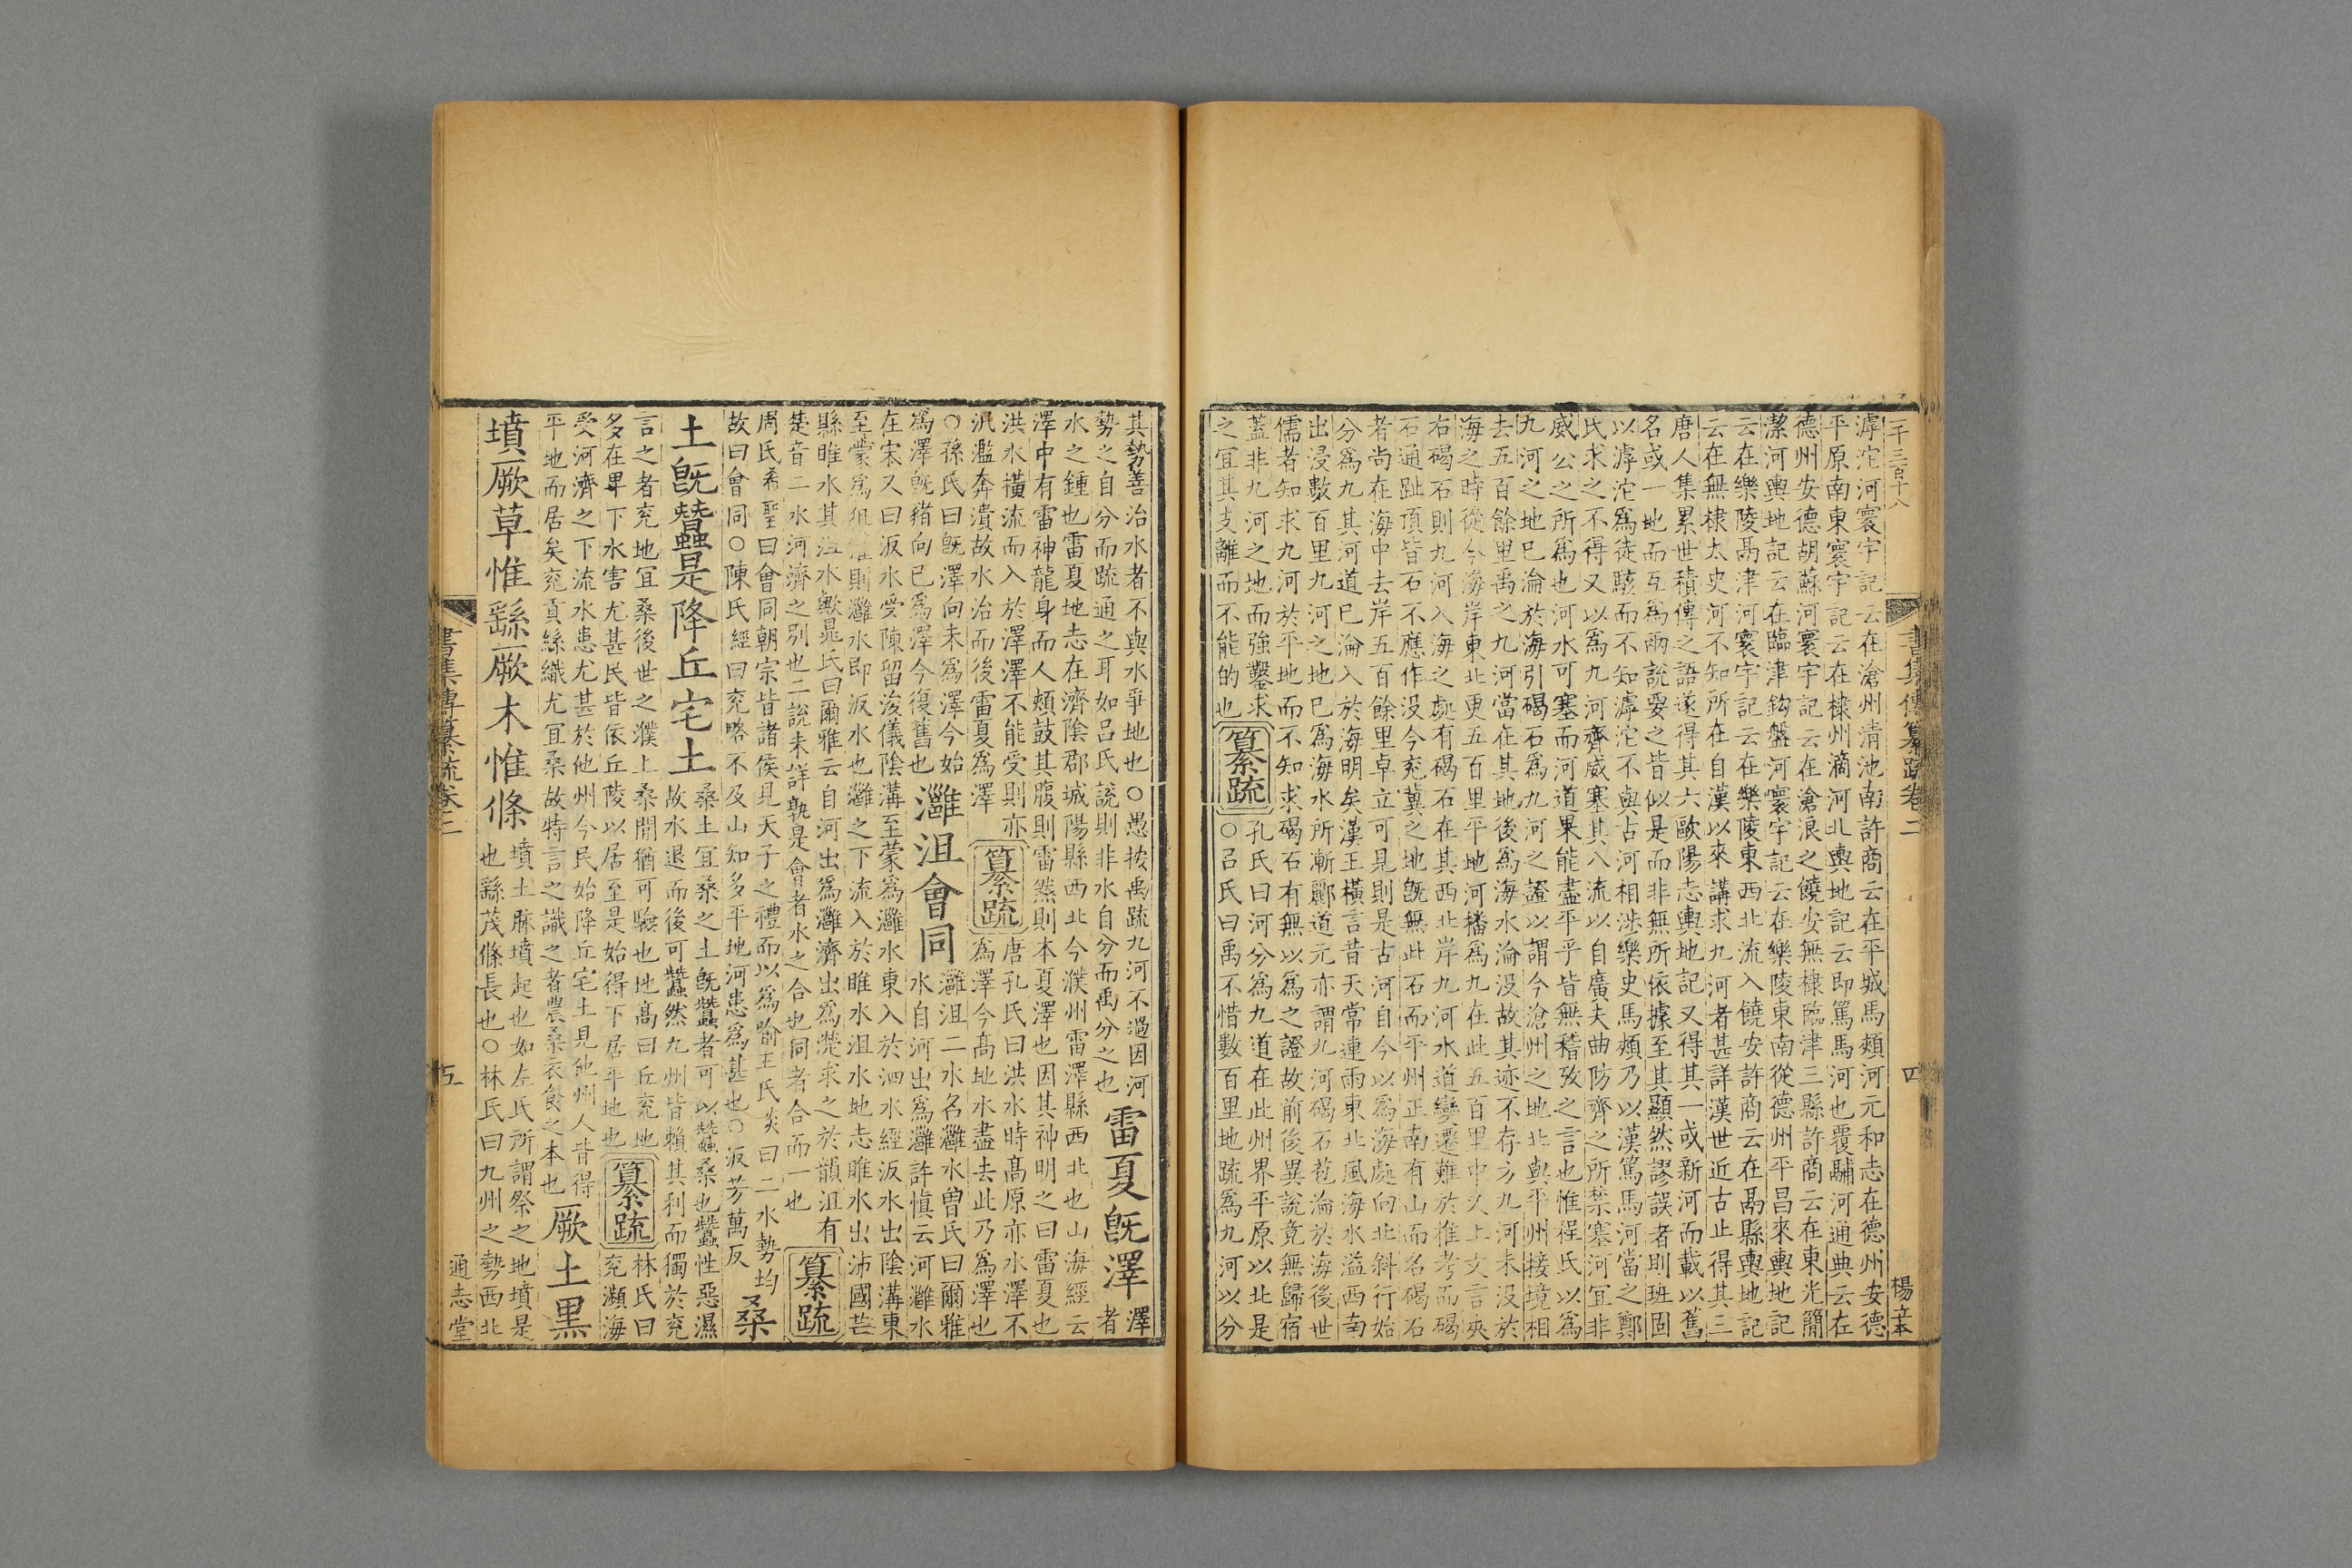 二千三百十八
書集傳纂疏卷二
四
楊立本
滹沱河寰宇記云在滄州清池南許商云在平城馬頰河元和志在德州安德
平原南東寰宇記云在棣州滴河北輿地記云即篤馬河也覆鬴河通典云在
德州安德胡蘇河寰宇記云在滄浪之饒安無棣臨津三縣許商云在東光簡
潔河輿地記云在臨津鈎盤河寰宇記云在樂陵東南從德州平昌來輿地記
云在樂陵鬲津河寰宇記云在樂陵東西北流入饒安許商云在鬲縣輿地記
云在無棣太史河不知所在自漢以來講求九河者甚詳漢世近古止得其三
唐人集累世積傳之語遂得其六歐陽志輿地記又得其一或新河而載以舊
名或一地而互爲兩說要之皆似是而非無所依據至其顯然謬誤者則班固
以滹沱爲徒駭而不知滹沱不與古河相涉樂史馬頰乃以漢篤馬河當之鄭
氏求之不得又以爲九河齊威塞其八流以自廣夫曲防齊之所禁塞河宜非
威公之所爲也河水可塞而河道果能盡平乎皆無稽攷之言也惟程氏以爲
九河之地已淪於海引碣石爲九河之證以謂今滄州之地北與平州接境相
去五百餘里禹之九河當在其地後爲海水淪没故其迹不存方九河未没於
海之時從今海岸東北更五百里平地河播爲九在此五百里中又上文言夾
右碣石則九河入海之處有碣石在其西北岸九河水道變遷難於推考而碣
石通趾頂皆石不應作没今兖冀之地旣無此石而平州正南有山而名碣石
者尚在海中去岸五百餘里卓立可見則是古河自今以爲海處向北斜行始
分爲九其河道已淪入於海明矣漢王橫言昔天常連雨東北風海水溢西南
出浸數百里九河之地已爲海水所漸酈道元亦謂九河碣石苞淪於海後世
儒者知求九河於平地而不知求碣石有無以爲之證故前後異說竟無歸宿
蓋非九河之地而強鑿求
之宜其支離而不能的也
纂疏
孔氏曰河分爲九道在此州界平原以北是
○呂氏曰禹不惜數百里地疏爲九河以分
其勢善治水者不與水爭地也○愚按禹疏九河不過因河
勢之自分而疏通之耳如呂氏說則非水自分而禹分之也
雷夏旣澤
澤
者
水之鍾也雷夏地志在濟陰郡城陽縣西北今濮州雷澤縣西北也山海經云
澤中有雷神龍身而人頰鼓其腹則雷然則本夏澤也因其神明之曰雷夏也
洪水橫流而入於澤澤不能受則亦
汎濫奔潰故水治而後雷夏爲澤
纂疏
唐孔氏曰洪水時高原亦水澤不
爲澤今高地水盡去此乃爲澤也
○孫氏曰旣澤向未爲澤今始
爲澤旣豬向已爲澤今復舊也
灉沮會同
灉沮二水名灉水曾氏曰爾雅
水自河出爲灉許愼云河灉水
在宋又曰汳水受陳留浚儀陰溝至蒙爲灉水東入於泗水經汳水出陰溝東
至蒙爲狙獾則灉水即汳水也灉之下流入於睢水沮水地志睢水出沛國芒
縣睢水其沮水歟晁氏曰爾雅云自河出爲灉濟出爲濋求之於韻沮有
楚音二水河濟之別也二說未詳孰是會者水之合也同者合而一也
纂疏
周氏希聖曰會同朝宗皆諸侯見天子之禮而以爲喻王氏炎曰二水勢均
故曰會同○陳氏經曰兖略不及山知多平地河患爲甚也○汳芳萬反
桑
土旣蠶是降丘宅土
桑土宜桑之土旣蠶者可以蠶桑也蠶性惡濕
故水退而後可蠶然九州皆賴其利而獨於兖
言之者兖地宜桑後世之濮上桑間猶可驗也地高曰丘兖地
多在卑下水害尤甚民皆依丘陵以居至是始得下居平地也
纂疏
林氏曰
兖瀕海
受河濟之下流水患尤甚於他州今民始降丘宅土見他州人皆得
平地而居矣兖貢絲織尤宜桑故特言之識之者農桑衣食之本也
厥土黑
墳厥草惟繇厥木惟條
墳土脉墳起也如左氏所謂祭之地墳是
也繇茂條長也○林氏曰九州之勢西北
書集傳纂疏卷二
五
通志堂